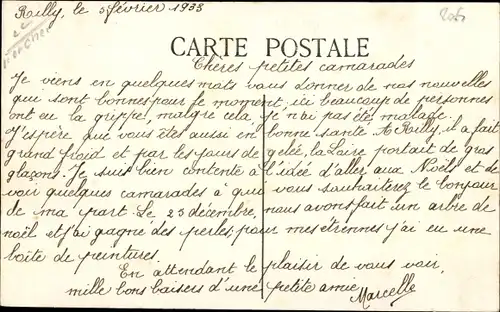 Rilly, le 5 février 1933
CARTE POSTALE
Chères petites camarades
Je viens en quelques mots vous donner de nos nouvelles
qui sont bonnes pour le moment, ici beaucoup de personnes
ont eu la grippe, malgré cela, je n'ai pas été malade.
J'espère que vous êtes aussi en bonne santé. A Rilly, il a fait
grand froid et par les jours de gelée, la Loire portait de gros
glaçons. Je suis bien contente à l'idée d'aller aux Noëls et de
voir quelques camarades à qui vous souhaiterez le bonjour
de ma part. Le 25 décembre, nous avons fait un arbre de
noël et j'ai gagné des perles, pour mes étrennes j'ai eu une
boîte de peintures.
En attendant le plaisir de vous voir,
mille bons baisers d'une petite amie
Marcelle